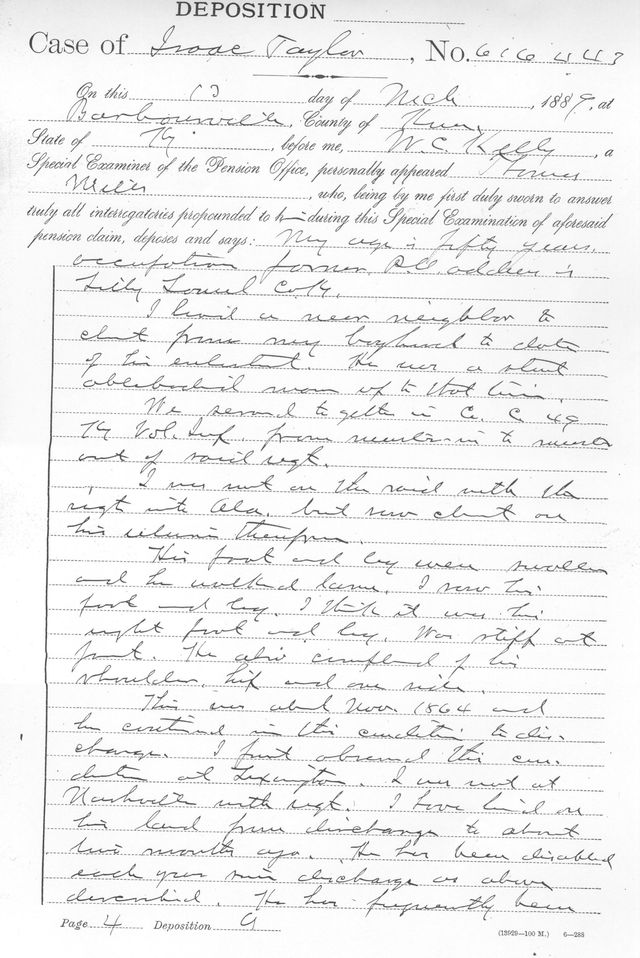 DEPOSITION
Case of Isaac Taylor, No. 616443
On this 13 day of Mch, 1889, at
Barbourville, County of Knox
State of Ky, before me, W. C. Kelly, a
Special Examiner of the Pension Office, personally appeared James
Mills, who, being by me first duly sworn to answer
truly all interrogatories propounded to him during this Special Examination of aforesaid
pension claim, deposes and says: My age is fifty years,
occupation farmer P.O. address is
Lilly Laurel Co Ky.
I lived a near neighbor to
clmt from my boyhood to date
of his enlistment. He was a stout
ablebodied man up to that time.
We served together in Co. C 49
Ky Vol. Inf. from muster-in to muster
out of said regt.
I was not on the raid with the
regt into Ala. but saw clmt on
his return therefrom.
His foot and leg were swollen
and he walked lame. I saw his
foot and leg. I think it was his
right foot and leg. Was stiff at
joint. He also complained of his
shoulder, hip and one side.
This was about Novr. 1864 and
he continued in this condition to dis-
charge. I first observed this con-
dition at Lexington. I was not at
Nashville with regt. I have lived on
his land from discharge to about
two months ago. He has been disabled
each year since discharge as above
described. He has frequently been
Page 4 Deposition G
(13929—100 M.) 6—288